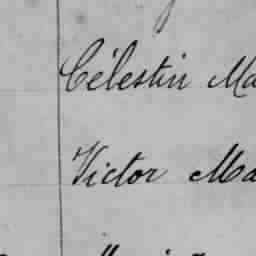 Célestin Ma
Victor Ma